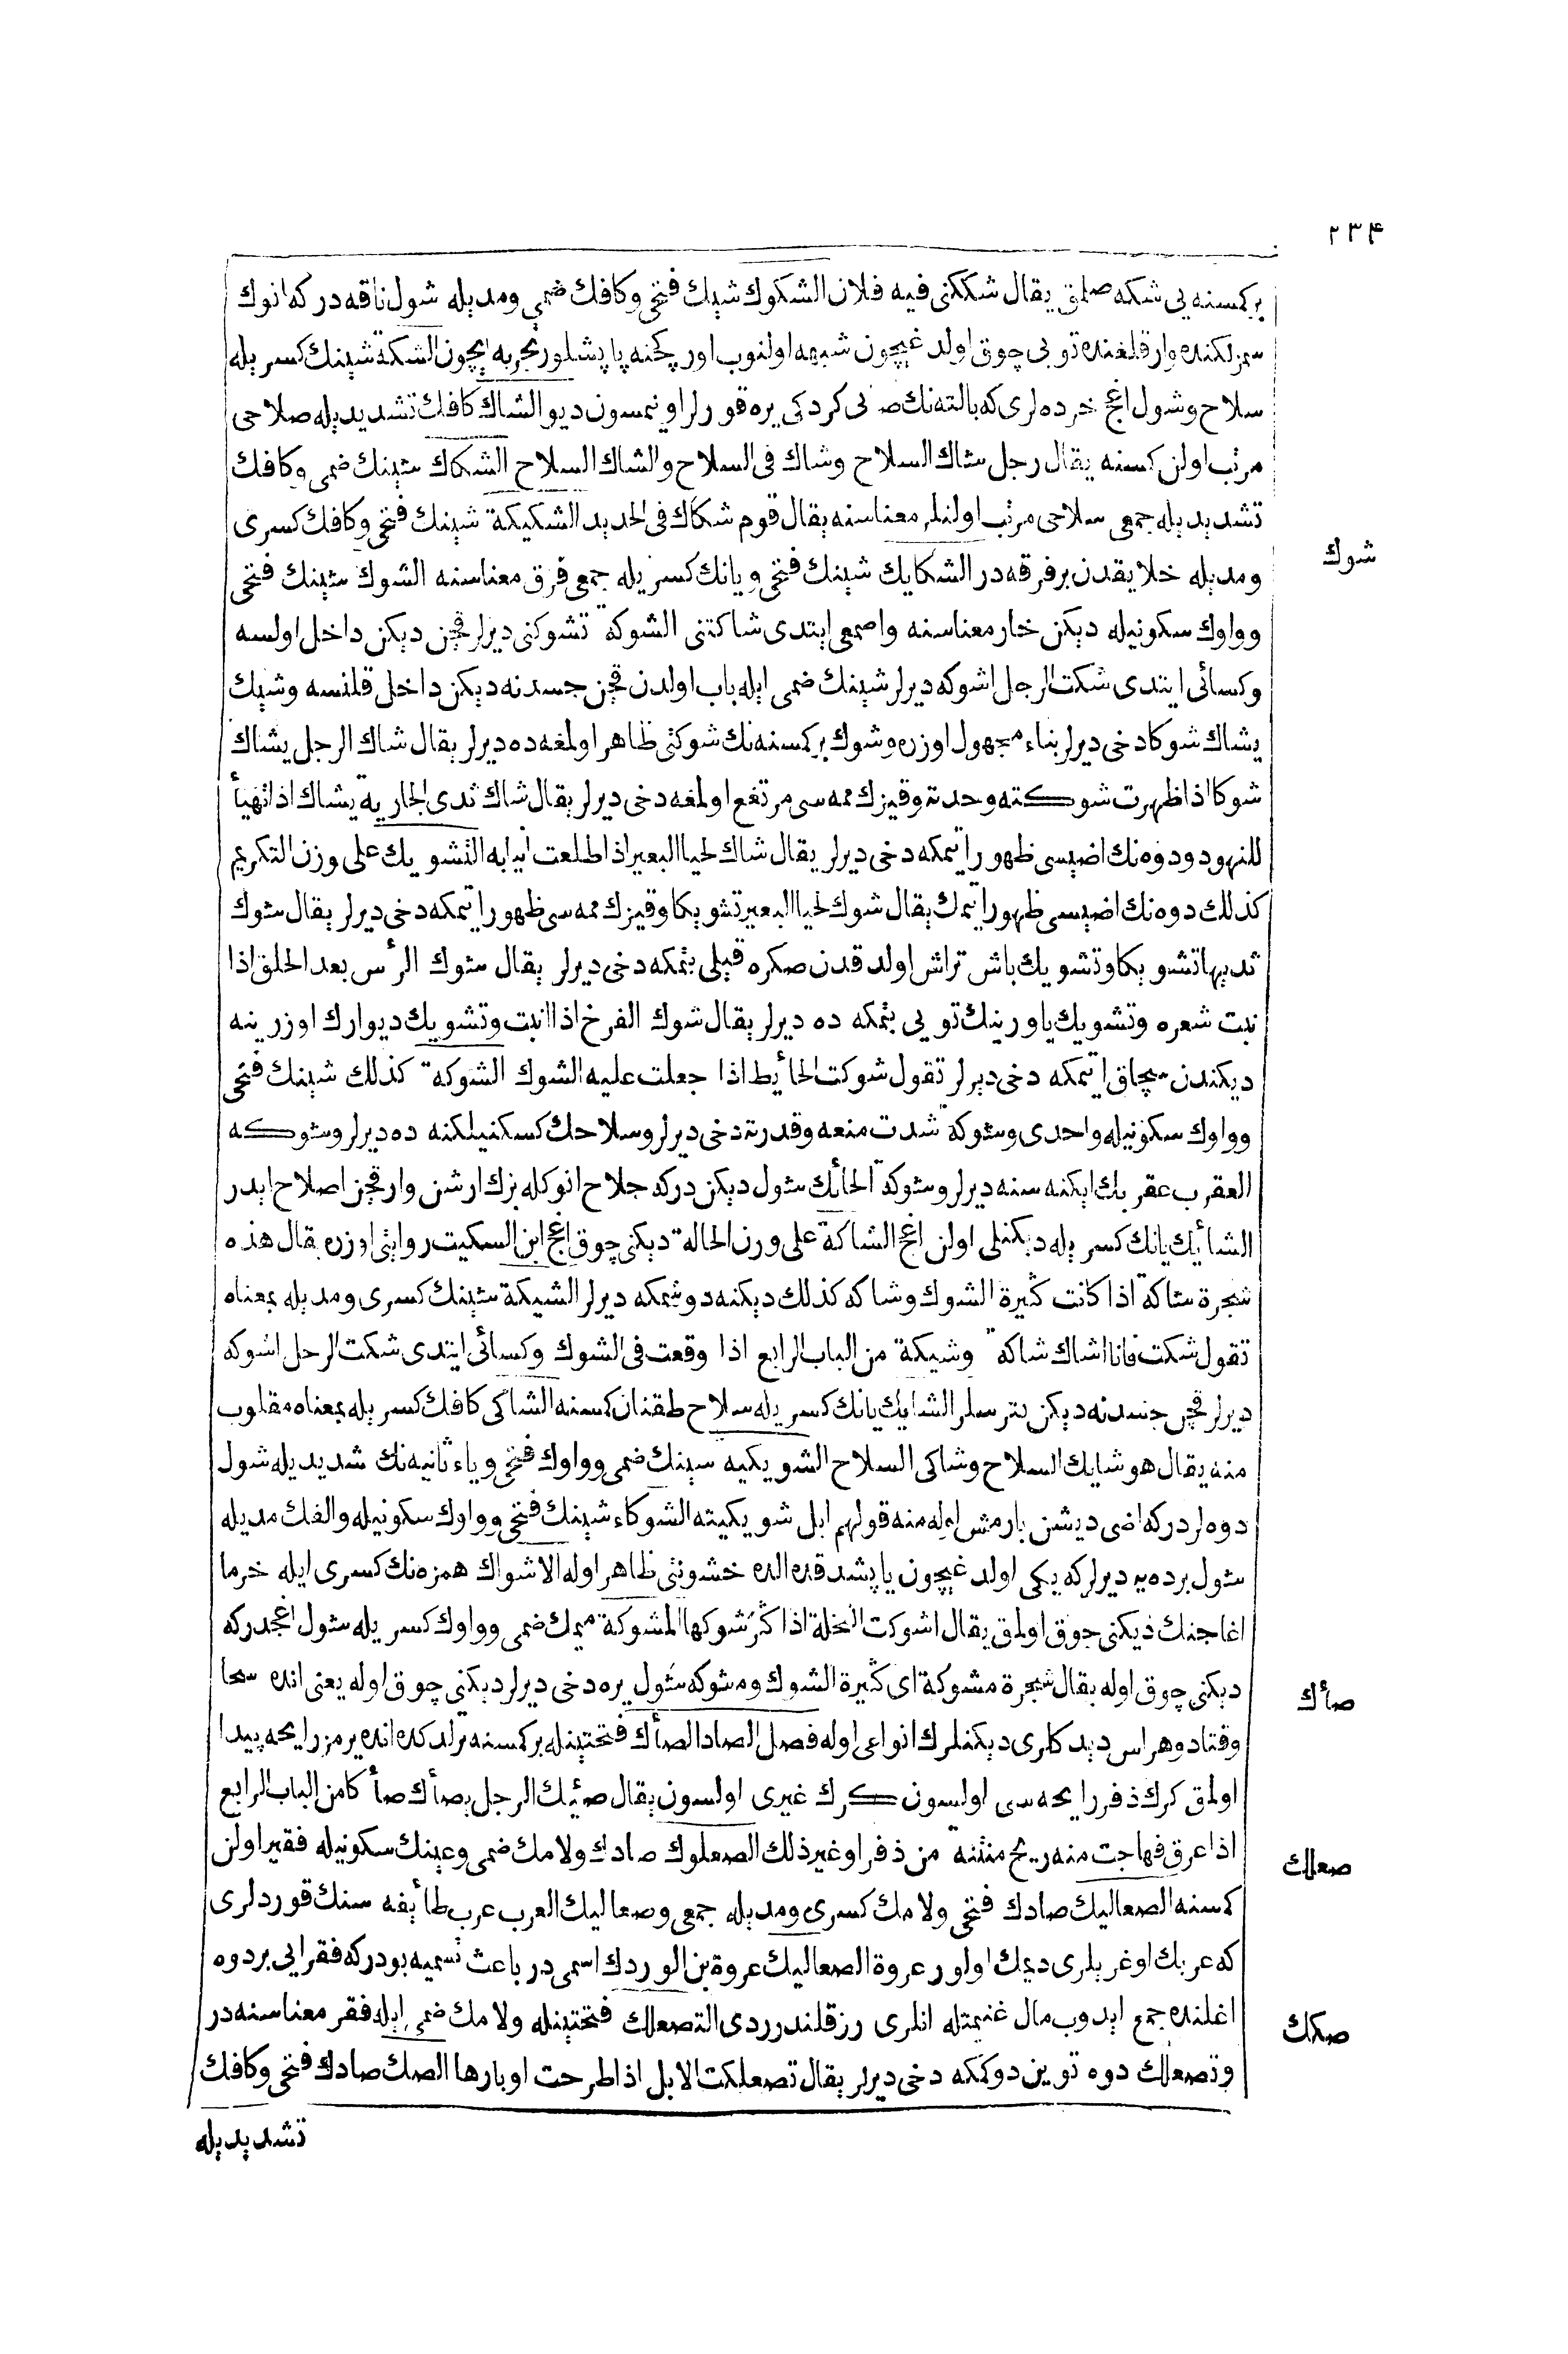 ٢٣٤
بر كمسنه يى شكه صلمق يقال شككنى فيه فلان الشكوك شينك فتحى وكافك ضمى ومديله شول ناقه در كه انوك
سمزلكنده وارقلغنده توبى چوق اولدغيچون شبهه اولنوب اوركچنه ياپشلور تجربه ايچون الشكة شينك كسريله
سلاح وشول اغج خرده لرى كه بالته نك صپى كردكى يره قورلر اونمسون ديو الشاك كافك تشديديله صلاحى
مرتب اولن كسنه يقال رجل شاك السلاح وشاك فى السلاح والشاك السلاح الشكاك شينك ضمى وكافك
تشديديله جمعى سلاحى مرتب اولنلر معناسنه يقال قوم شكاك فى الحديد الشكيكة شينك فتحى وكافك كسرى
شوك
ومديله خلايقدن بر فرقه در الشكايك شينك فتحى ويانك كسريله جمعى فرق معناسنه الشوك شينك فتحى
وواوك سكونيله ديكن خار معناسنه واصمعى ايتدى شاكتنى الشوكة تشوكنى ديرلر قچن ديكن داخل اولسه
وكسائى ايتدى شكت الرجل اشوكه ديرلر شينك ضمى ايله باب اولدن قچن جسدنه ديكن داخل قلنسه وشيك
يشاك شوكا دخى ديرلر بناء مجهول اوزره وشوك بر كمسنه نك شوكتى ظاهر اولمغه ده ديرلر يقال شاك الرجل يشاك
شوكا اذا ظهرت شوكته وحدته وقيزك ممه سى مرتفع اولمغه دخى ديرلر يقال شاك ثدى الجارية يشاك اذا تهيأ
للنهود ودوه نك اضيسى ظهور اتمكه دخى ديرلر يقال شاك لحيا البعير اذا طلعت انيابه التشويك على وزن التكريم
كذلك دوه نك اضيسى ظهور اتمك يقال شوك لحيا البعير تشويكا وقيزك ممه سى ظهور اتمكه دخى ديرلر يقال شوك
ثديها تشويكا وتشويك باش تراش اولدقدن صكره قيلى بتمكه دخى ديرلر يقال شوك الرأس بعد الحلق اذا
نبت شعره وتشويك ياورينك توبى بتمكه ده ديرلر يقال شوك الفرخ اذا انبت وتشويك ديوارك اوزرينه
ديكندن پچاق اتمكه دخى ديرلر تقول شوكت الحائط اذا جعلت عليه الشوك الشوكة كذلك شينك فتحى
وواوك سكونيله واحدى وشوكة شدت منعه وقدرته دخى ديرلر وسلاحك كسكنيلكنه ده ديرلر وشوكه
العقرب عقربك ايكنه سنه ديرلر وشوكة الحائك شول ديكن در كه جلاح انوكله بزك ارشن وارقچن اصلاح ايدر
الشائك يانك كسريله ديكنلى اولن اغج الشاكة على وزن الحالة ديكنى چوق اغج ابن السكيت روايتى اوزره يقال هذه
شجرة شاكة اذا كانت كثيرة الشوك وشاكه كذلك ديكنه دوشمكه ديرلر الشيكة شينك كسرى ومديله بمعناه
تقول شكت فانا اشاك شاكة وشيكة من الباب الرابع اذا وقعت فى الشوك وكسائى ايتدى شكت الرجل اشوكه
ديرلر قچن جسدنه ديكن بترسلر الشايك يانك كسريله سلاح طقنان كمسنه الشاكى كافك كسريله بمعناه مقلوب
منه يقال هو شايك السلاح وشاكى السلاح الشويكيه شينك ضمى وواوك فتحى وياء ثانيه نك شديديله شول
دوه لردر كه اضى ديشن يارمش اوله منه قولهم ابل شويكيته الشوكاء شينك فتحى وواوك سكونيله والفك مديله
شول برده يه ديرلر كه يكى اولدغيچون ياپشدقده الده خشونتى ظاهر اوله الاشواك همزه نك كسرى ايله خرما
اغاجنك ديكنى چوق اولمق يقال اشوكت النخلة اذا كثر شوكها المشوكة ميمك ضمى وواوك كسريله شول اغجدر كه
ديكنى چوق اوله يقال شجرة مشوكة اى كثيرة الشوك ومشوكه شول يره دخى ديرلر ديكنى چوق اوله يعنى انده سحا
صأك
وقتاد وهراس ديدكلرى ديكنلرك انواعى اوله فصل الصاد الصأك فتحتينله بر كمسنه ترلدكده انده يرمز رايحه پيدا
اولمق كرك ذفر رايحه سى اولسون كرك غيرى اولسون يقال صئيك الرجل يصأك صأكا من الباب الرابع
اذا عرق فهاجت منه ريح منتنة من ذفر او غير ذلك الصعلوك صادك ولامك ضمى وعينك سكونيله فقير اولن
صعلك
كمسنه الصعاليك صادك فتحى ولامك كسرى ومديله جمعى وصعاليك العرب عرب طائفه سنك قوردلرى
كه عربك اوغريلرى ديمك اولور عروة الصعاليك عروة بن الوردك اسمى در باعث تسميه بودر كه فقرايى بر دوه
اغلنده جمع ايدوب مال غنيمتله انلرى رزقلندرردى التصعلك فتحتينله ولامك ضمى ايله فقر معناسنه در
صكك
وتصعلك دوه توين دوكمكه دخى ديرلر يقال تصعلكت الابل اذا طرحت اوبارها الصك صادك فتحى وكافك
تشديديله